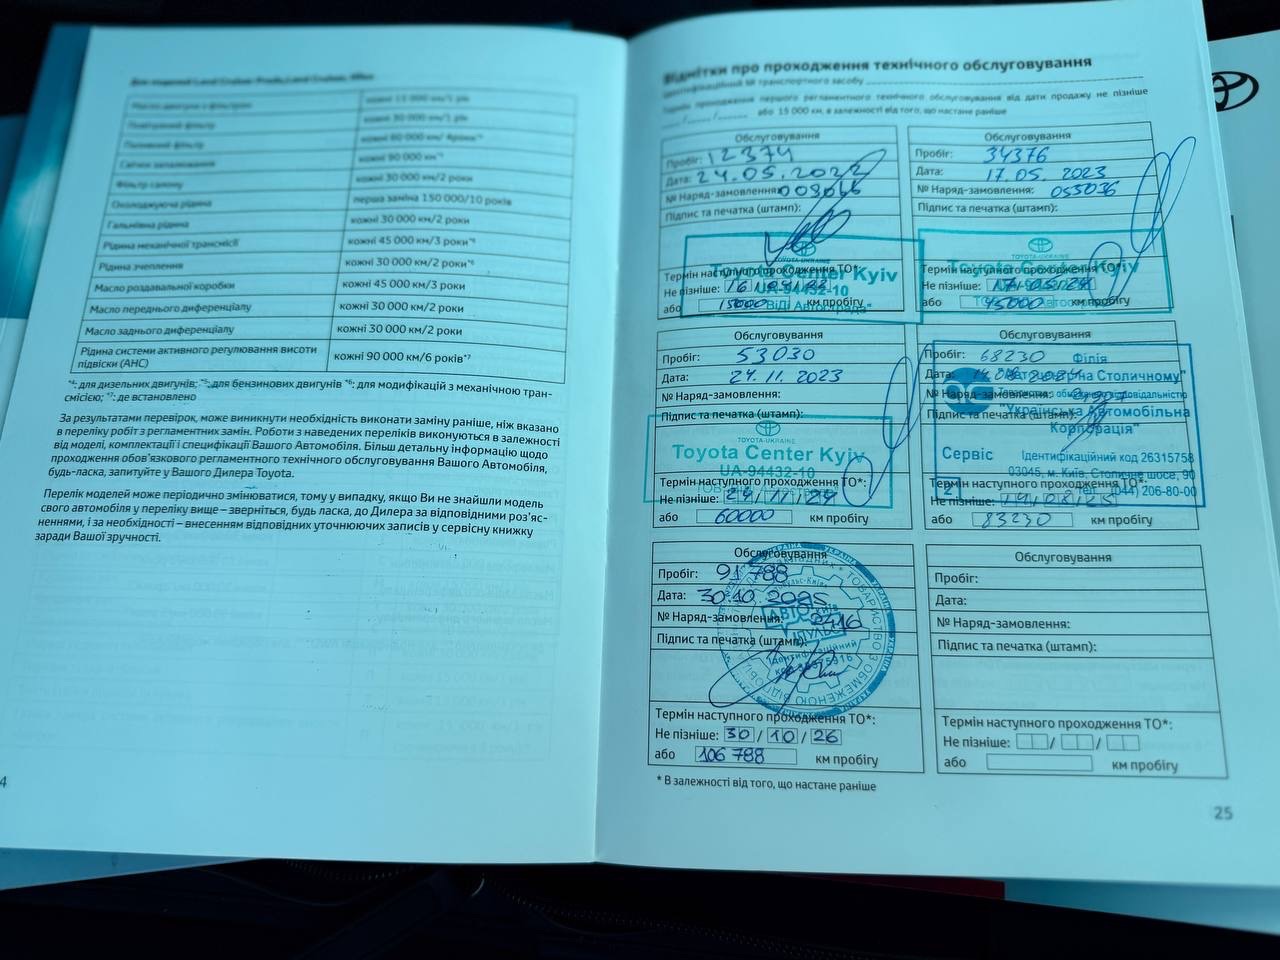 Для моделей Land Cruiser Prado, Land Cruiser, Hilux
Масло двигуна з фільтром кожні 15 000 км/1 рік
Повітряний фільтр кожні 30 000 км/2 роки
Паливний фільтр
Свічки запалювання кожні 90 000 км
Фільтр салону кожні 30 000 км/2 роки
Охолоджуюча рідина перша заміна 150 000/10 років
Гальмівна рідина кожні 30 000 км/2 роки
Рідина механічної трансмісії кожні 45 000 км/3 роки*⁶
Рідина зчеплення кожні 30 000 км/2 роки*⁶
Масло роздавальної коробки кожні 45 000 км/3 роки
Масло переднього диференціалу кожні 30 000 км/2 роки
Масло заднього диференціалу кожні 30 000 км/2 роки
Рідина системи активного регулювання висоти підвіски (AHC) кожні 90 000 км/6 років*⁷
*⁴: для дизельних двигунів; *⁵: для бензинових двигунів *⁶: для модифікацій з механічною тран-
смісією; *⁷: де встановлено
За результатами перевірок, може виникнути необхідність виконати заміну раніше, ніж вказано
в переліку робіт з регламентних замін. Роботи з наведених переліків виконуються в залежності
від моделі, комплектації і специфікації Вашого Автомобіля. Більш детальну інформацію щодо
проходження обов'язкового регламентного технічного обслуговування Вашого Автомобіля,
будь-ласка, запитуйте у Вашого Дилера Toyota.
Перелік моделей може періодично змінюватися, тому у випадку, якщо Ви не знайшли модель
свого автомобіля у переліку вище – зверніться, будь ласка, до Дилера за відповідними роз'яс-
неннями, і за необхідності – внесенням відповідних уточнюючих записів у сервісну книжку
заради Вашої зручності.
4
Відмітки про проходження технічного обслуговування
Ідентифікаційний № транспортного засобу
Термін проходження першого регламентного технічного обслуговування від дати продажу не пізніше
або 15 000 км, в залежності від того, що настане раніше
Обслуговування
Пробіг: 12374
Дата: 24.05.2022
№ Наряд-замовлення: 009046
Підпис та печатка (штамп):
TOYOTA-UKRAINE
Toyota Center Kyiv
UA-94432-10
"ВіДі Автострада"
Термін наступного проходження ТО*:
Не пізніше:
або 15000 км пробігу
Обслуговування
Пробіг: 34376
Дата: 17.05.2023
№ Наряд-замовлення: 053036
Підпис та печатка (штамп):
TOYOTA-UKRAINE
Toyota Center Kyiv
Термін наступного проходження ТО*:
Не пізніше: 17/05/24
або 45000 км пробігу
Обслуговування
Пробіг: 53030
Дата: 24.11.2023
№ Наряд-замовлення:
Підпис та печатка (штамп):
TOYOTA-UKRAINE
Toyota Center Kyiv
UA-94432-10
Термін наступного проходження ТО*:
Не пізніше: 24/11/24
або 60000 км пробігу
Обслуговування
Пробіг: 68230
Дата:
№ Наряд-замовлення:
Підпис та печатка (штамп):
Філія
"Автоцентр на Столичному"
Товариства з обмеженою відповідальністю
"Українська Автомобільна
Корпорація"
Сервіс Ідентифікаційний код 26315758
03045, м. Київ, Столичне шосе, 90
21 Тел. (044) 206-80-00
Термін наступного проходження ТО*:
Не пізніше:
або 83230 км пробігу
Обслуговування
Пробіг: 91 788
Дата: 30.10.2025
№ Наряд-замовлення: 2416
Підпис та печатка (штамп):
ТОВАРИСТВО З ОБМЕЖЕНОЮ ВІДПОВІДАЛЬНІСТЮ
АВТО
ІМПУЛЬС
Ідентифікаційний
Термін наступного проходження ТО*:
Не пізніше: 30/10/26
або 106 788 км пробігу
Обслуговування
Пробіг:
Дата:
№ Наряд-замовлення:
Підпис та печатка (штамп):
Термін наступного проходження ТО*:
Не пізніше:
або км пробігу
* В залежності від того, що настане раніше
25